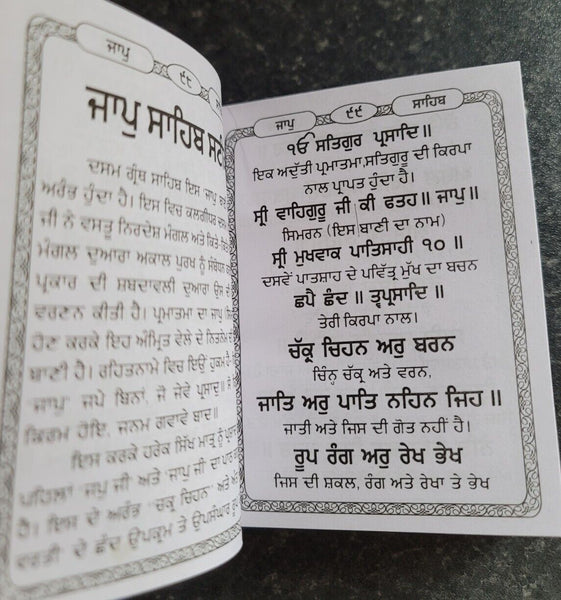 ਜਾਪੁ ੯੮
ਜਾਪੁ ਸਾਹਿਬ ਸਟੀ
ਦਸਮ ਗ੍ਰੰਥ ਸਾਹਿਬ ਇਸ 'ਜਾਪੁ'
ਅਰੰਭ ਹੁੰਦਾ ਹੈ। ਇਸ ਵਿਚ ਕਲਗੀਧਰ
ਜੀ ਨੇ ਵਸਤੂ ਨਿਰਦੇਸ਼ ਮੰਗਲ ਅਤੇ ਕਿਤੇ
ਮੰਗਲ ਦੁਆਰਾ ਅਕਾਲ ਪੁਰਖ ਨੂੰ ਸੰਬੋਧਨ
ਪ੍ਰਕਾਰ ਦੀ ਸ਼ਬਦਾਵਲੀ ਦੁਆਰਾ ਉਸ ਦੀ
ਵਰਣਨ ਕੀਤੀ ਹੈ। ਪ੍ਰਮਾਤਮਾ ਦਾ ਜਾਪੁ
ਹੋਣ ਕਰਕੇ ਇਹ ਅੰਮ੍ਰਿਤ ਵੇਲੇ ਦੇ ਨਿਤਨੇਮ ਦੀ
ਬਾਣੀ ਹੈ। ਰਹਿਤਨਾਮੇ ਵਿਚ ਇਉਂ ਹੁਕਮ ਹੈ
"ਜਾਪੁ" ਜਪੇ ਬਿਨਾਂ, ਜੋ ਜੇਵੇ ਪ੍ਰਸਾਦੁ॥ ਸੋ
ਕਿਰਮ ਹੋਇ, ਜਨਮ ਗਵਾਵੇ ਬਾਦ॥
ਇਸ ਕਰਕੇ ਹਰੇਕ ਸਿੱਖ ਮਾਤ੍ਰ ਨੂੰ
ਪਹਿਲਾਂ 'ਜਪੁ ਜੀ' ਅਤੇ 'ਜਾਪੁ' ਜੀ ਦਾ ਪਾਠ
ਹੈ। ਇਸ ਦੇ ਅਰੰਭ "ਚਕ੍ਰ ਚਿਹਨ"
ਦੇ ਛੰਦ ਉਪਕ੍ਰਮ ਤੇ ਉਪਸੰਘਾਰ
ਜਾਪੁ ੯੯ ਸਾਹਿਬ
ੴ ਸਤਿਗੁਰ ਪ੍ਰਸਾਦਿ॥
ਇਕ ਅਦੁੱਤੀ ਪ੍ਰਮਾਤਮਾ ਸਤਿਗੁਰੂ ਦੀ ਕਿਰਪਾ
ਨਾਲ ਪ੍ਰਾਪਤ ਹੁੰਦਾ ਹੈ।
ਸ੍ਰੀ ਵਾਹਿਗੁਰੂ ਜੀ ਕੀ ਫਤਹ॥ ਜਾਪੁ॥
ਸਿਮਰਨ (ਇਸ ਬਾਣੀ ਦਾ ਨਾਮ)
ਸ੍ਰੀ ਮੁਖਵਾਕ ਪਾਤਿਸਾਹੀ ੧੦ ॥
ਦਸਵੇਂ ਪਾਤਸ਼ਾਹ ਦੇ ਪਵਿੱਤ੍ਰ ਮੁੱਖ ਦਾ ਬਚਨ
ਛਪੈ ਛੰਦ ॥ ਤ੍ਵਪ੍ਰਸਾਦਿ ॥
ਤੇਰੀ ਕਿਰਪਾ ਨਾਲ।
ਚੱਕ੍ਰ ਚਿਹਨ ਅਰੁ ਬਰਨ
ਚਿੰਨ੍ਹ ਚੱਕ੍ਰ ਅਤੇ ਵਰਨ,
ਜਾਤਿ ਅਰੁ ਪਾਤਿ ਨਹਿਨ ਜਿਹ ॥
ਜਾਤੀ ਅਤੇ ਜਿਸ ਦੀ ਗੋਤ ਨਹੀਂ ਹੈ।
ਰੂਪ ਰੰਗ ਅਰੁ ਰੇਖ ਭੇਖ
ਜਿਸ ਦੀ ਸ਼ਕਲ, ਰੰਗ ਅਤੇ ਰੇਖਾ ਤੇ ਭੇਖ